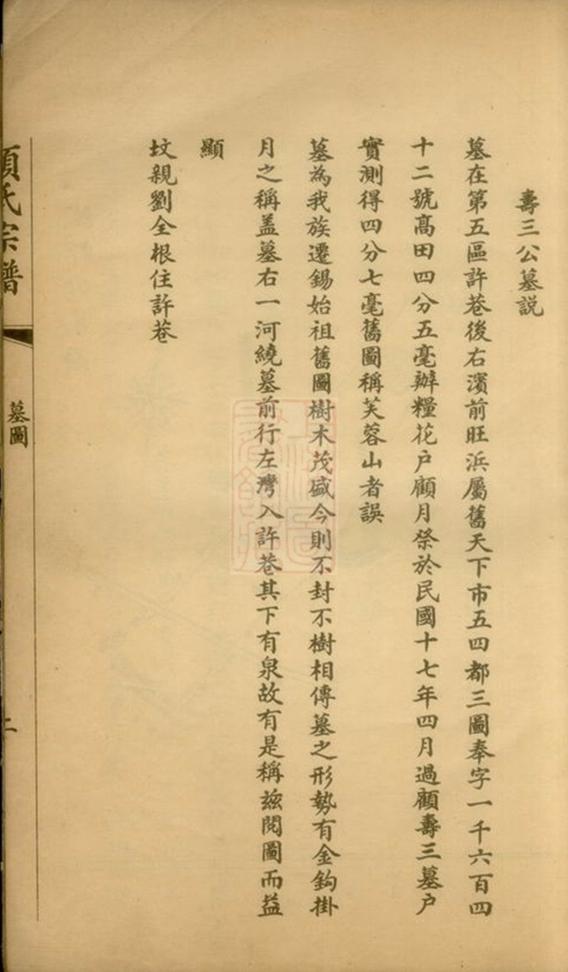 壽三公墓説
墓在第五區許巷後右濱前旺浜屬舊天下市五四都三圖奉字一千六百四
十二號高田四分五毫辦糧花户顧月祭於民國十七年四月過顧壽三墓户
實測得四分七毫舊圖稱芙蓉山者誤
墓為我族遷錫始祖舊圖樹木茂盛今則不封不樹相傳墓之形勢有金鉤掛
月之稱盖墓右一河繞墓前行左灣入許巷其下有泉故有是稱兹閲圖而益
顯
坟親劉全根住許巷
氏宗譜
墓圖
二